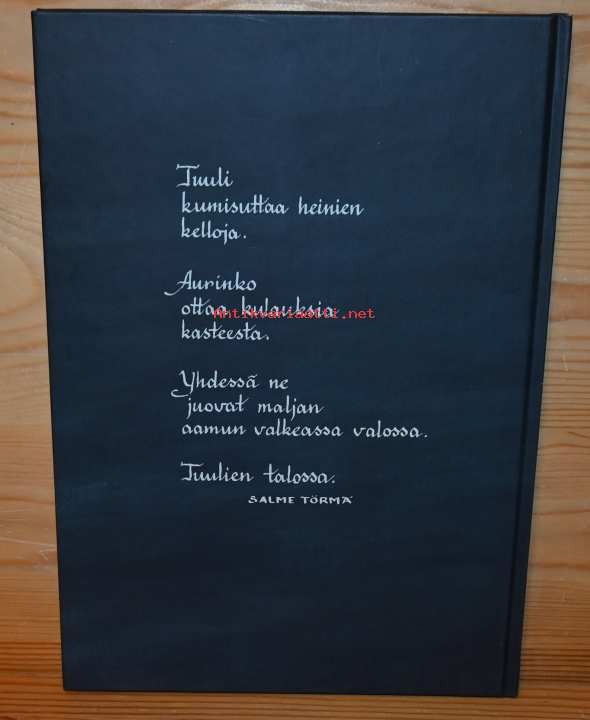 Tuuli
kumisuttaa heinien
kelloja.
Aurinko
ottaa kulauksia
Antikvariaatti.net
kasteesta.
Yhdessä ne
juovat maljan
aamun valkeassa valossa.
Tuulien talossa.
SALME TÖRMÄ